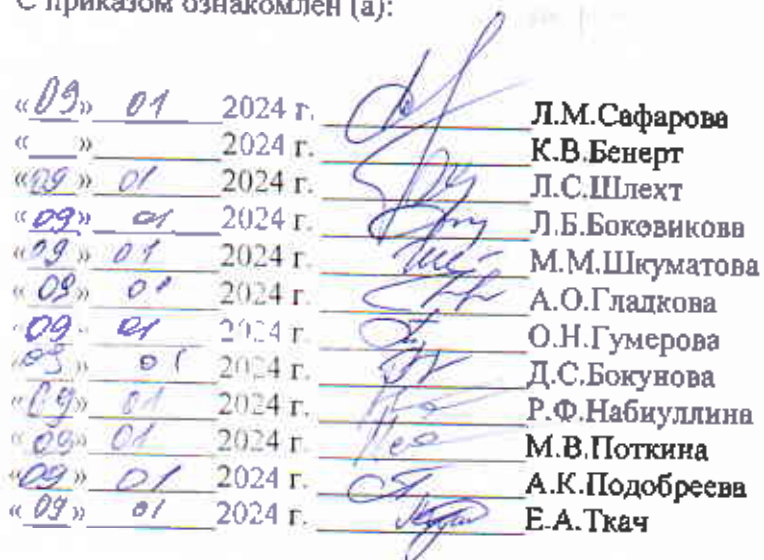 С приказом ознакомлен (а):
«09» 01 2024 г. Л.М.Сафарова
« » 2024 г. К.В.Бенерт
«09» 01 2024 г. Л.С.Шлехт
«09» 01 2024 г. Л.Б.Боковикова
«09» 01 2024 г. М.М.Шкуматова
«09» 01 2024 г. А.О.Гладкова
«09» 01 2024 г. О.Н.Гумерова
«09» 01 2024 г. Д.С.Бокунова
«09» 01 2024 г. Р.Ф.Набиуллина
«09» 01 2024 г. М.В.Поткина
«09» 01 2024 г. А.К.Подобреева
«09» 01 2024 г. Е.А.Ткач